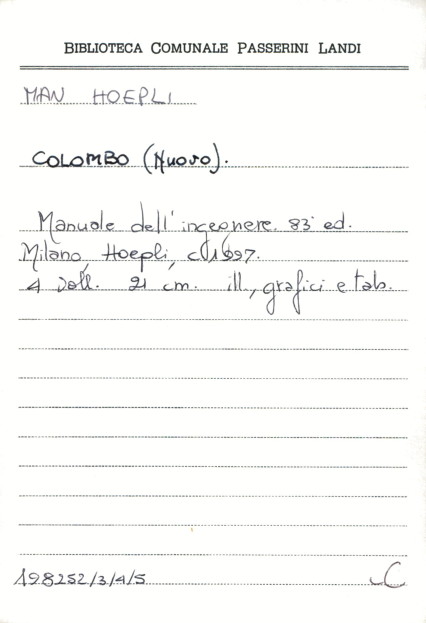 BIBLIOTECA COMUNALE PASSERINI LANDI
MAN HOEPLI
COLOMBO (Nuovo).
Manuale dell'ingegnere. 83ª ed.
Milano, Hoepli, c1997.
4 voll. 21 cm. ill., grafici e tab.
198252/3/4/5 C